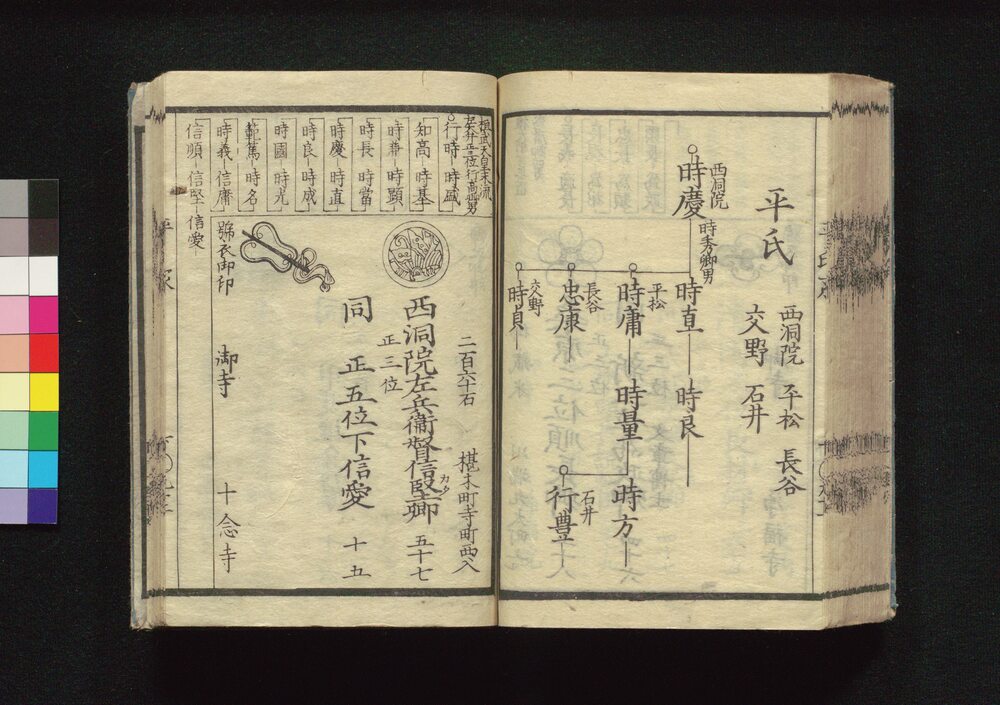 平氏
西洞院 平松 長谷
交野 石井
西洞院
時慶
時秀卿男
時直 時良
平松
時庸 時量 時方
石井
行豊
長谷
忠康
交野
時貞
桓武天皇末流
安井正三位行高男
行時 時盛
知高 時基
時兼 時顕
時長 時當
時慶 時直
時良 時成
時國 時光
範篤 時名
時義 信庸
信順 信堅 信愛
二百六十石
椹木町寺町西入
西洞院左兵衛督信堅卿 五十七
カタ
正三位
同 正五位下信愛 十五
御寺 十念寺